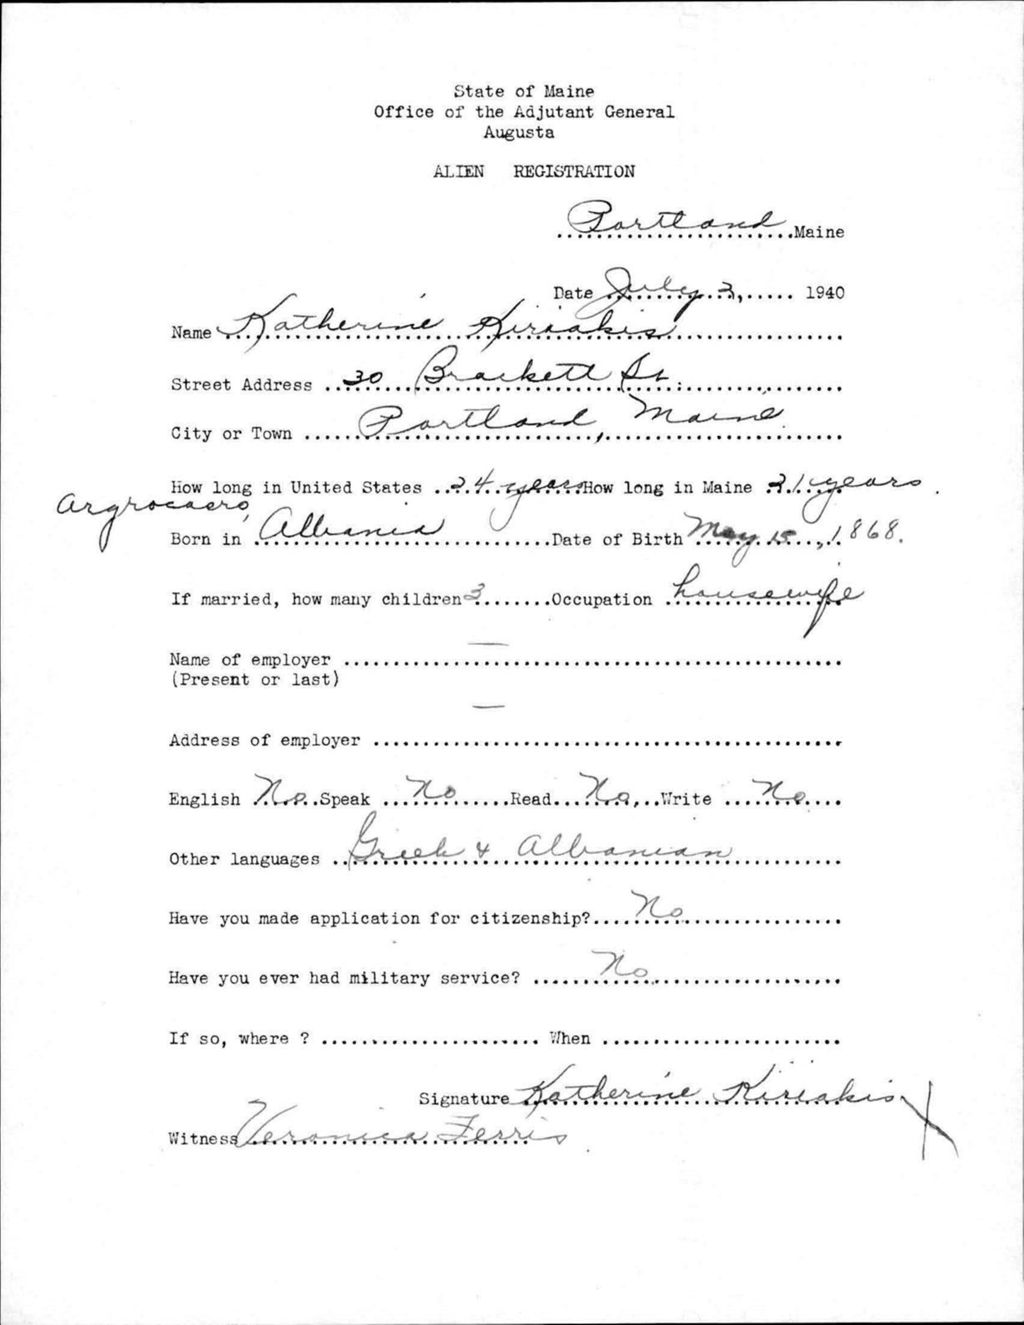 State of Maine
Office of the Adjutant General
Augusta
ALIEN REGISTRATION
Portland Maine
Date July 3, 1940
Name Katherine Kiriakis
Street Address 30 Brackett St.
City or Town Portland, Maine
How long in United States 24 years How long in Maine 21 years.
Argrocastro,
Born in Albania Date of Birth May 15, 1868.
If married, how many children 3 Occupation housewife
Name of employer —
(Present or last)
Address of employer —
English No Speak No Read No, Write No
Other languages Greek & Albanian
Have you made application for citizenship? No
Have you ever had military service? No
If so, where ? When
Signature Katherine Kiriakis X
Witness Veronica Ferris